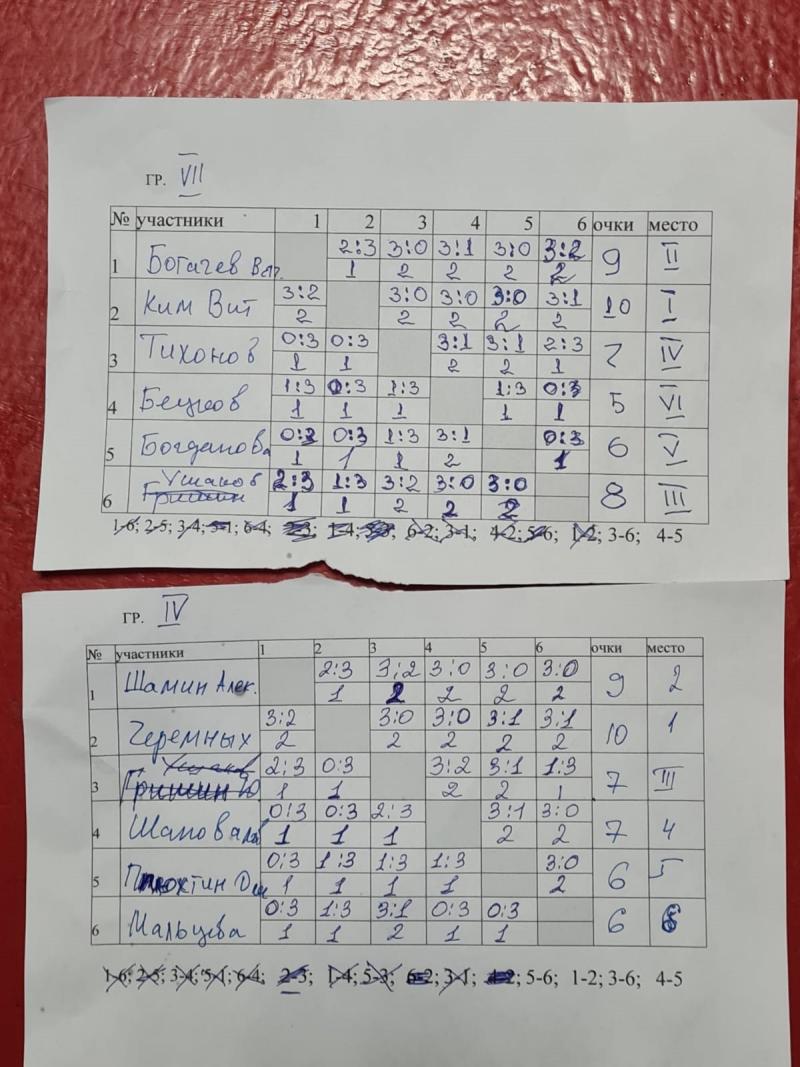 ГР. VII
№ участники 1 2 3 4 5 6 очки место
1 Богачев Вяч. 2:3 3:0 3:1 3:0 3:2 9 II
1 2 2 2 2
2 Ким Вит 3:2 3:0 3:0 3:0 3:1 10 I
2 2 2 2 2
3 Тихонов 0:3 0:3 3:1 3:1 2:3 7 IV
1 1 2 2 1
4 1:3 0:3 1:3 1:3 0:3 5 VI
1 1 1 1 1
5 Богданова 0:3 0:3 1:3 3:1 0:3 6 V
1 1 1 2 1
Ушаков 2:3 1:3 3:2 3:0 3:0 8 III
6 Гришин 1 1 2 2 2
1-6; 2-5; 3-4; 5-1; 6-4; 2-3; 1-4; 5-3; 6-2; 3-1; 4-2; 5-6; 1-2; 3-6; 4-5
ГР. IV
№ участники 1 2 3 4 5 6 очки место
1 Шамин Алек. 2:3 3:2 3:0 3:0 3:0 9 2
1 2 2 2 2
2 Черемных 3:2 3:0 3:0 3:1 3:1 10 1
2 2 2 2 2
Ушаков 2:3 0:3 3:2 3:1 1:3 7 III
3 Гришин Ю 1 1 2 2 1
4 Шаповалов 0:3 0:3 2:3 3:1 3:0 7 4
1 1 1 2 2
5 0:3 1:3 1:3 1:3 3:0 6 5
1 1 1 1 2
6 Мальцева 0:3 1:3 3:1 0:3 0:3 6 6
1 1 2 1 1
1-6; 2-5; 3-4; 5-1; 6-4; 2-3; 1-4; 5-3; 6-2; 3-1; 4-2; 5-6; 1-2; 3-6; 4-5